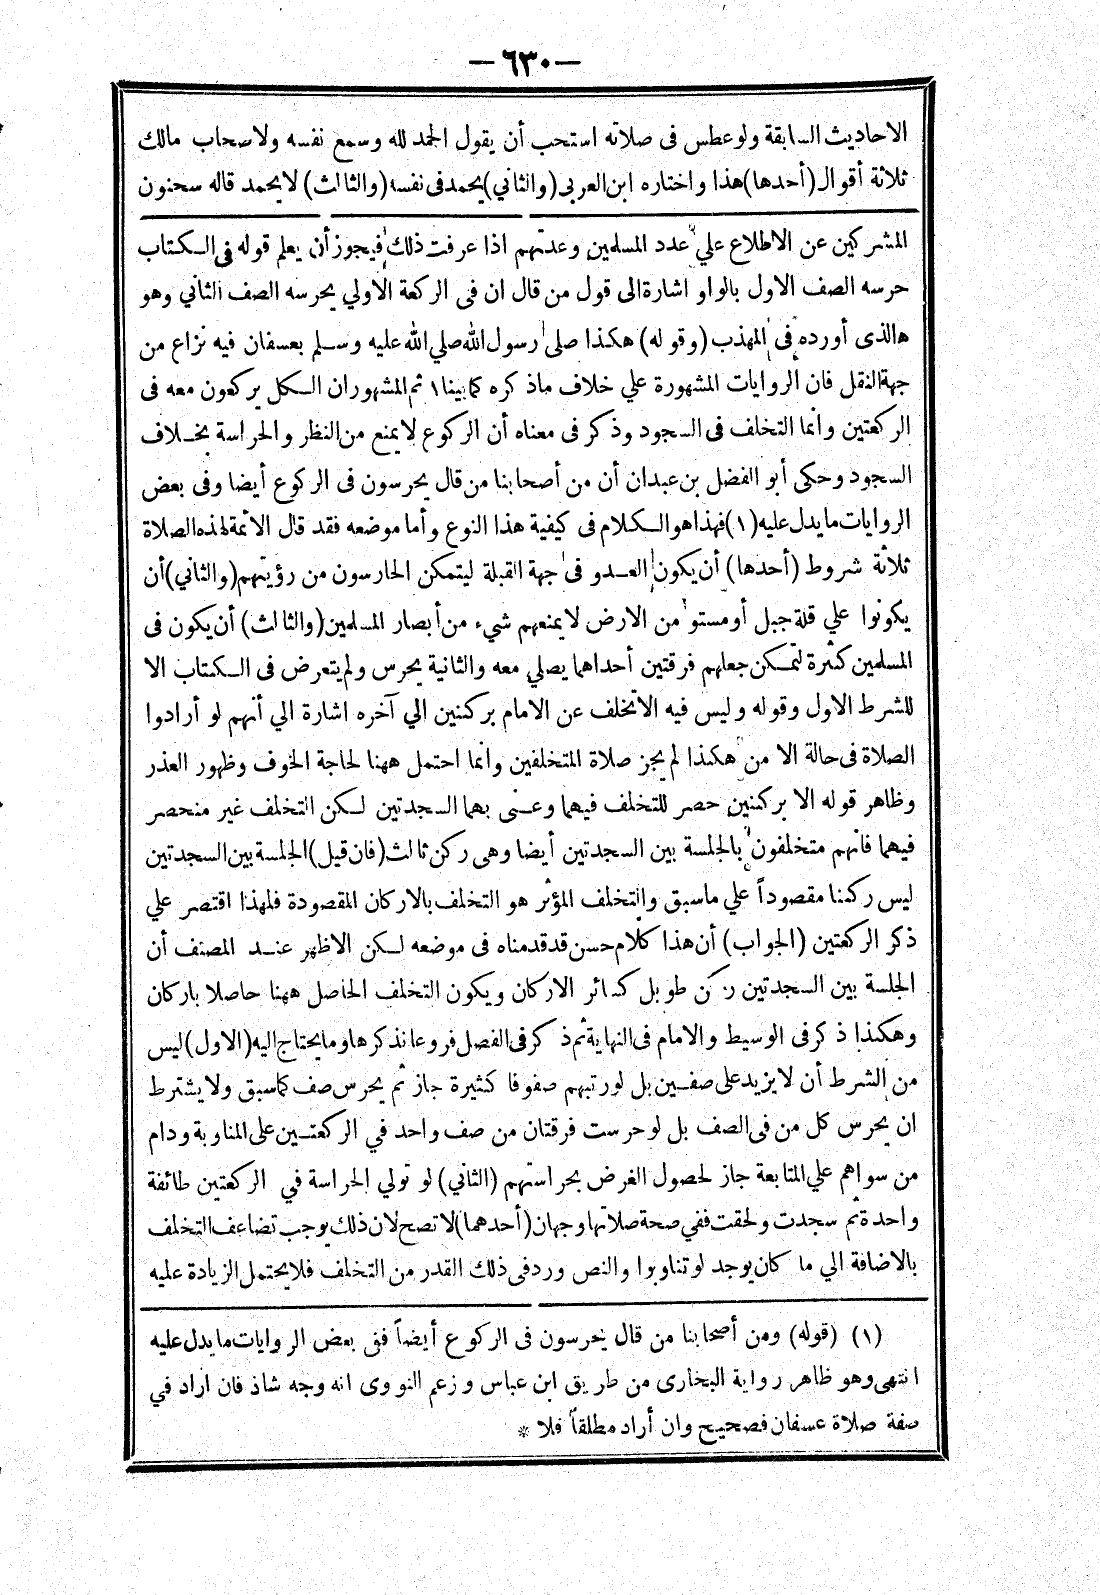 — ٦٣٠ —
الاحاديث السابقة ولو عطس فى صلاته استحب أن يقول الحمد لله وسمع نفسه ولاصحاب مالك
ثلاثة أقوال (أحدها) هذا واختاره ابن العربى (والثاني) يحمد فى نفسه (والثالث) لا يحمد قاله سحنون
المشركين عن الاطلاع علي عدد المسلمين وعدتهم اذا عرفت ذلك فيجوز أن يعلم قوله فى الكتاب
حرسه الصف الاول بالواو اشارة الى قول من قال ان فى الركعة الاولي يحرسه الصف الثاني وهو
هالذى أورده فى المهذب (وقوله) هكذا صلى رسول الله صلي الله عليه وسلم بعسفان فيه نزاع من
جهة النقل فان الروايات المشهورة علي خلاف ماذكره كما بينا ١ ثم المشهوران الكل يركعون معه فى
الركعتين وانما التخلف فى السجود وذكر فى معناه أن الركوع لا يمنع من النظر والحراسة بخلاف
السجود وحكى أبو الفضل بن عبدان أن من أصحابنا من قال يحرسون فى الركوع أيضا وفى بعض
الروايات ما يدل عليه (١) فهذا هو الكلام فى كيفية هذا النوع وأما موضعه فقد قال الأئمة لهذه الصلاة
ثلاثة شروط (أحدها) أن يكون العدو فى جهة القبلة ليتمكن الحارسون من رؤيتهم (والثاني) أن
يكونوا علي قلة جبل أو مستو من الارض لا يمنعهم شيء من أبصار المسلمين (والثالث) أن يكون فى
المسلمين كثرة لتمكن جعلهم فرقتين أحداهما يصلي معه والثانية يحرس ولم يتعرض فى الكتاب الا
للشرط الاول وقوله وليس فيه الا تخلف عن الامام بركنين الي آخره اشارة الي أنهم لو أرادوا
الصلاة فى حالة الامن هكذا لم يجز صلاة المتخلفين وانما احتمل ههنا لحاجة الخوف وظهور العذر
وظاهر قوله الا بركنين حصر للتخلف فيهما وعنى بهما السجدتين لكن التخلف غير منحصر
فيهما فانهم متخلفون بالجلسة بين السجدتين أيضا وهى ركن ثالث (فان قيل) الجلسة بين السجدتين
ليس ركنا مقصوداً علي ماسبق والتخلف المؤثر هو التخلف بالاركان المقصودة فلهذا اقتصر علي
ذكر الركعتين (الجواب) أن هذا كلام حسن قد قدمناه فى موضعه لكن الاظهر عند المصنف أن
الجلسة بين السجدتين ركن طويل كسائر الاركان ويكون التخلف الحاصل ههنا حاصلا باركان
وهكذا ذكر فى الوسيط والامام فى النهاية ثم ذكر فى الفصل فروعا نذكرها وما يحتاج اليه (الاول) ليس
من الشرط أن لا يزيد على صفين بل لو رتبهم صفوفا كثيرة جاز ثم يحرس صف كما سبق ولا يشترط
ان يحرس كل من فى الصف بل لو حرست فرقتان من صف واحد في الركعتين على المناوبة ودام
من سواهم علي المتابعة جاز لحصول الغرض بحراستهم (الثاني) لو تولي الحراسة في الركعتين طائفة
واحدة ثم سجدت ولحقت ففي صحة صلاتها وجهان (أحدهما) لا تصح لان ذلك يوجب تضاعف التخلف
بالاضافة الي ما كان يوجد لو تناوبوا والنص ورد فى ذلك القدر من التخلف فلا يحتمل الزيادة عليه
(١) (قوله) ومن أصحابنا من قال يحرسون فى الركوع أيضاً ففى بعض الروايات ما يدل عليه
انتهى وهو ظاهر رواية البخارى من طريق ابن عباس وزعم النووى انه وجه شاذ فان اراد في
صفة صلاة عسفان فصحيح وان أراد مطلقاً فلا *